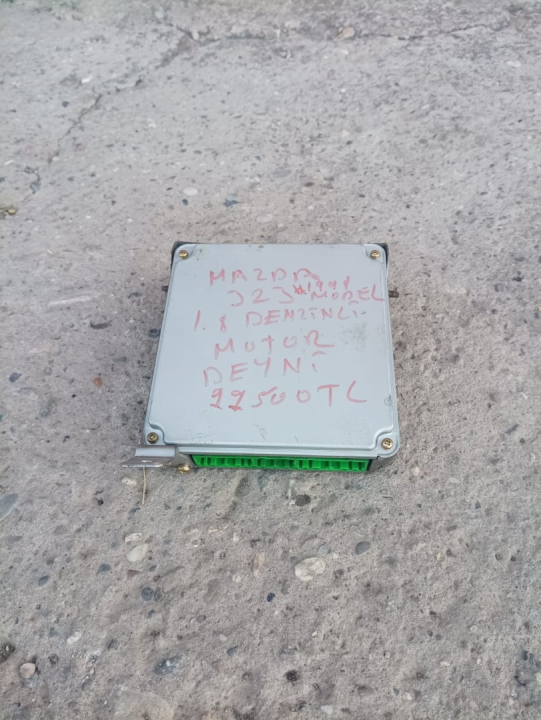 MAZDA
323 MODEL
1.8 BENZİNLİ
MOTOR
BEYNİ
22500TL